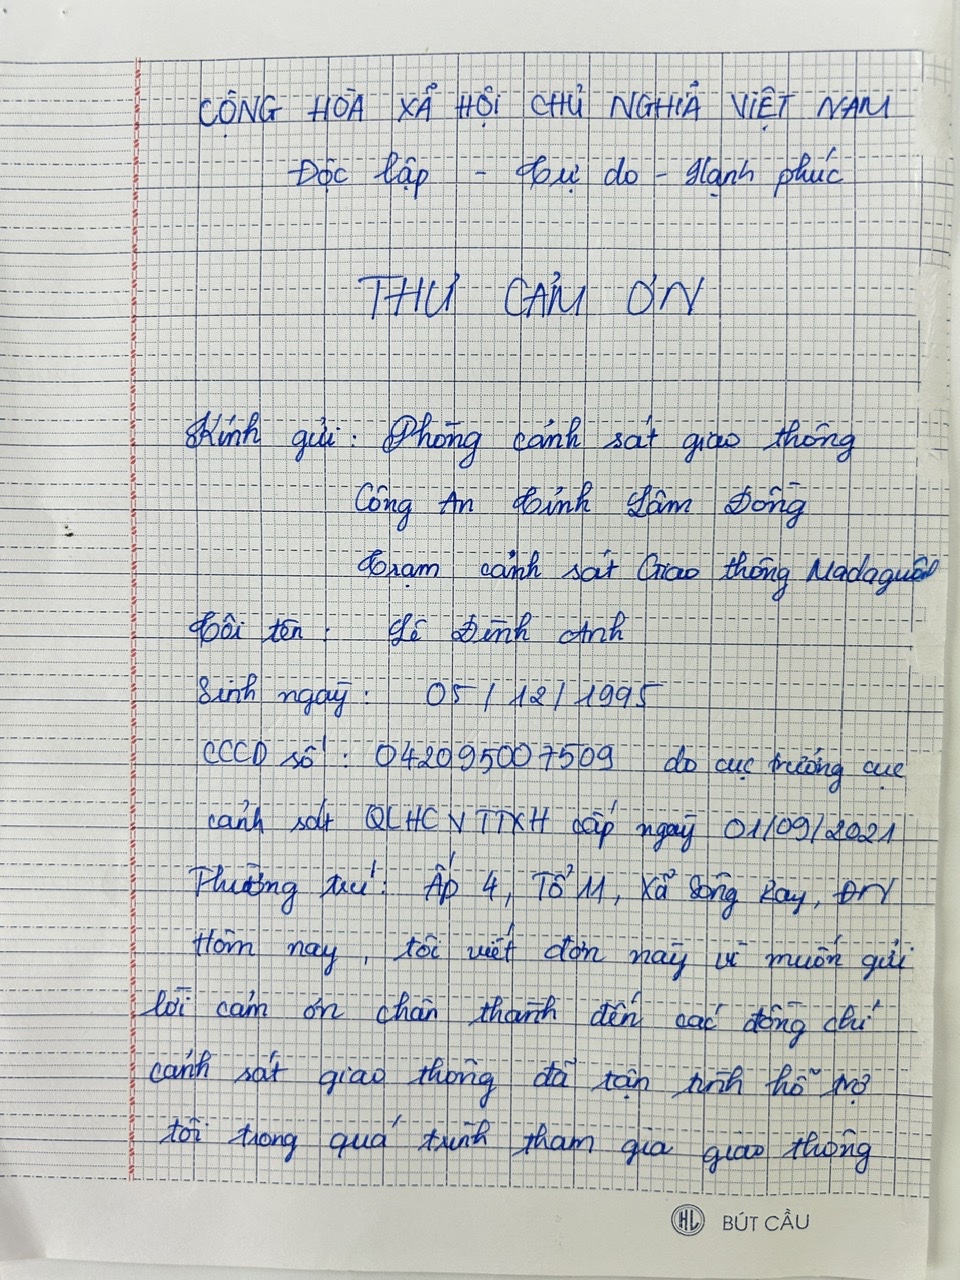 CỘNG HÒA XẢ HỘI CHỦ NGHIẢ VIỆT NAM
Độc lập - Tự do - Hạnh phúc
THƯ CẢM ƠN
Kính gửi: Phòng cảnh sát giao thông
Công An tỉnh Lâm Đồng
Trạm cảnh sát Giao thông Madaguôi
Tôi tên: Lê Đình Anh
Sinh ngày: 05/12/1995
CCCD số: 042095007509 do cục trưởng cục
cảnh sát QLHCVTTXH cấp ngày 01/09/2021
Thường trú: Ấp 4, Tổ 11, Xã Sông Ray, ĐN
Hôm nay, tôi viết đơn này vì muốn gửi
lời cảm ơn chân thành đến các đồng chí
cảnh sát giao thông đã tận tình hỗ trợ
tôi trong quá trình tham gia giao thông
HL BÚT CẦU